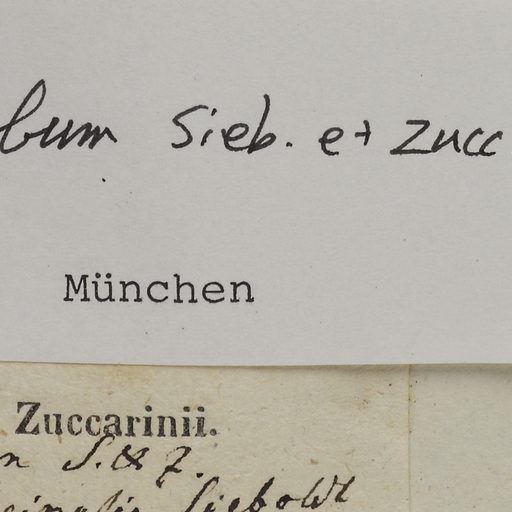 bum Sieb. et Zucc
München
Zuccarinii.
n S. & Z.
Siebold